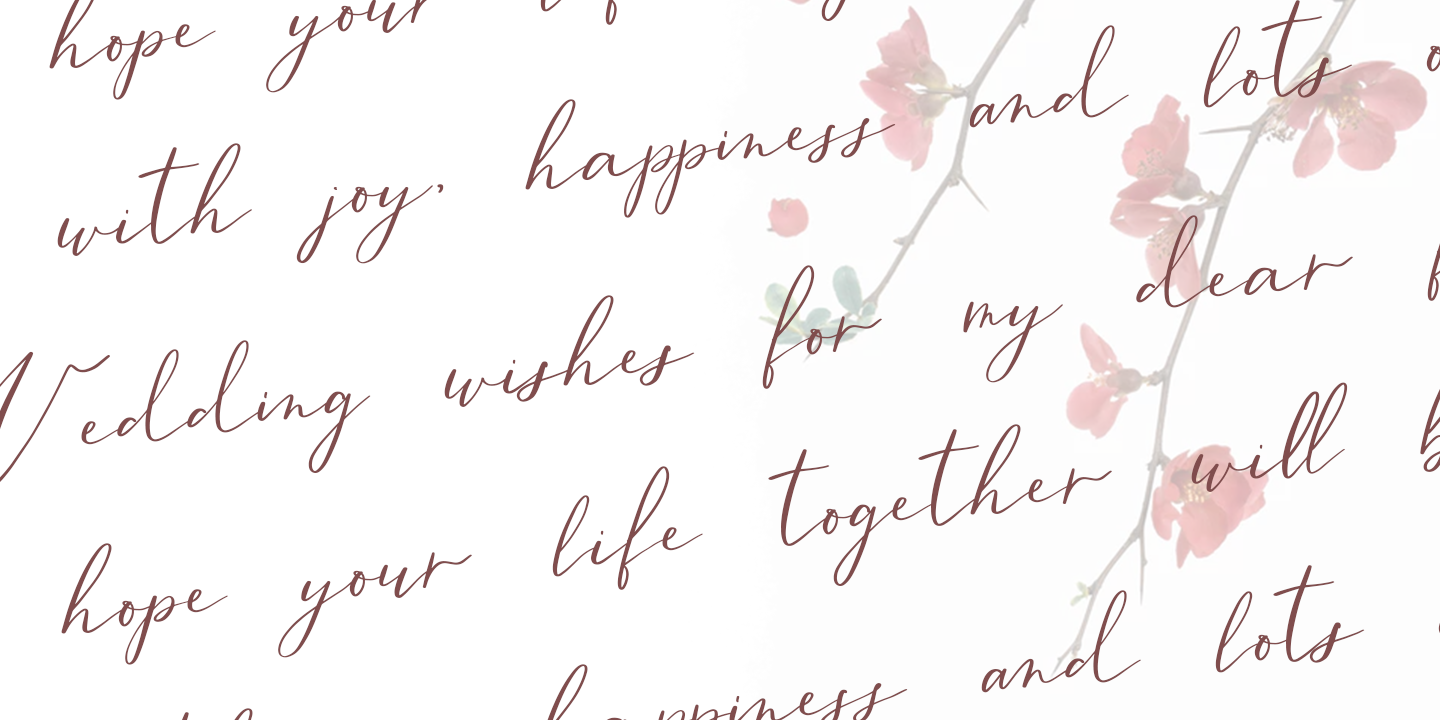 hope your
with joy, happiness and lots
Wedding wishes for my dear
hope your life together will
happiness and lots